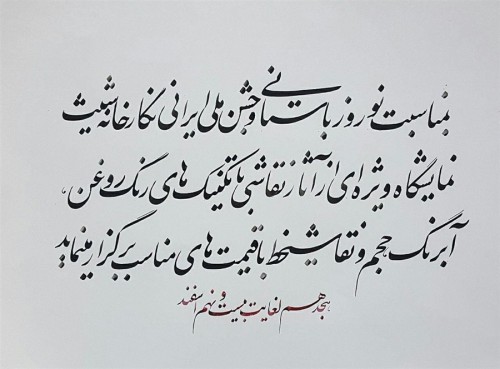 بمناسبت نوروز باستانی و جشن ملی ایرانی نگارخانه شیث
نمایشگاه ویژه‌ای از آثار نقاشی با تکنیک‌های رنگ روغن،
آبرنگ حجم و نقاشیخط با قیمت‌های مناسب برگزار مینماید
هجدهم لغایت بیست و نهم اسفند